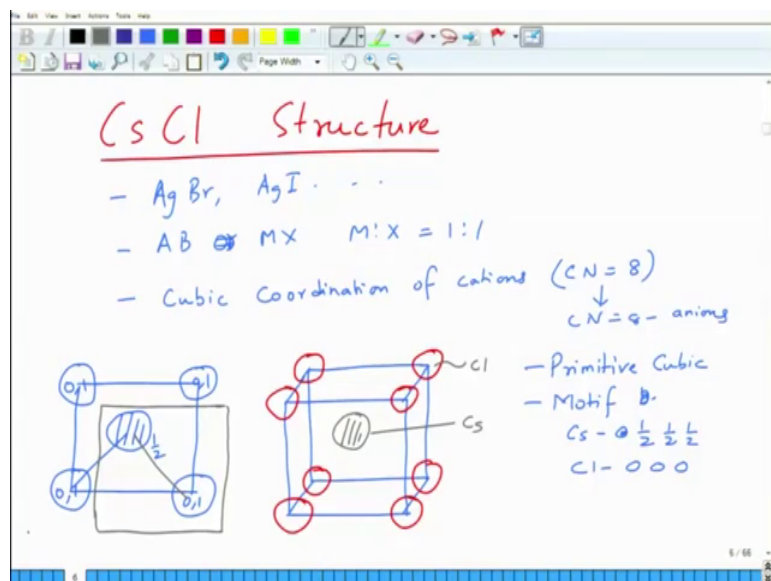 File Edit View Insert Actions Tools Help
B I
Page Width
CsCl Structure
- AgBr, AgI . . .
- AB or MX M:X = 1:1
- Cubic Coordination of cations (CN=8)
↓
CN=8- anions
0,1 0,1
1/2
0,1 0,1
Cl
Cs
- Primitive Cubic
- Motif
Cs - 1/2 1/2 1/2
Cl - 0 0 0
6 / 66
6